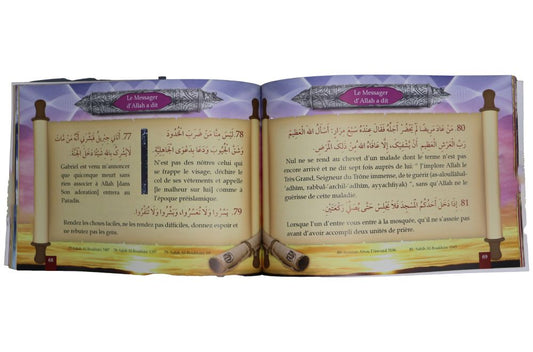 Le Messager
d'Allah a dit
77. أتاني جبريل فبشرني أنه من مات
لا يشرك بالله شيئا دخل الجنة.
Gabriel est venu m'annoncer
que quiconque meurt sans
rien associer à Allah [dans
Son adoration] entrera au
Paradis.
78. ليس منا من ضرب الخدود
وشق الجيوب ودعا بدعوى الجاهلية.
N'est pas des nôtres celui qui
se frappe le visage, déchire le
col de ses vêtements et appelle
[le malheur sur lui] comme à
l'époque préislamique.
79. يسروا ولا تعسروا، وبشروا ولا تنفروا.
Rendez les choses faciles, ne les rendez pas difficiles, donnez espoir et
ne rebutez pas les gens.
68
Le Messager
d'Allah a dit
80. من عاد مريضا لم يحضر أجله فقال عنده سبع مرار: أسأل الله العظيم
رب العرش العظيم أن يشفيك، إلا عافاه الله من ذلك المرض.
Nul ne se rend au chevet d'un malade dont le terme n'est pas
encore arrivé et ne dit sept fois auprès de lui: " J'implore Allah le
Très Grand, Seigneur du Trône immense, de te guérir (as-aloullâhal-
'adhîm, rabbal-'archil-'adhîm, ayyachfiyak) ", sans qu'Allah ne le
guérisse de cette maladie.
81. إذا دخل أحدكم المسجد فلا يجلس حتى يصلي ركعتين.
Lorsque l'un d'entre vous entre à la mosquée, qu'il ne s'assoie pas
avant d'avoir accompli deux unités de prière.
69